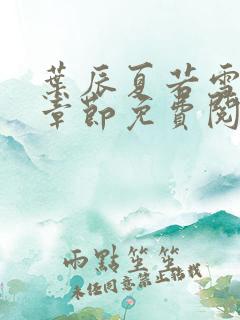 葉辰夏若雪
章節免費閱
雨點笙笙
未經同意禁止搭載